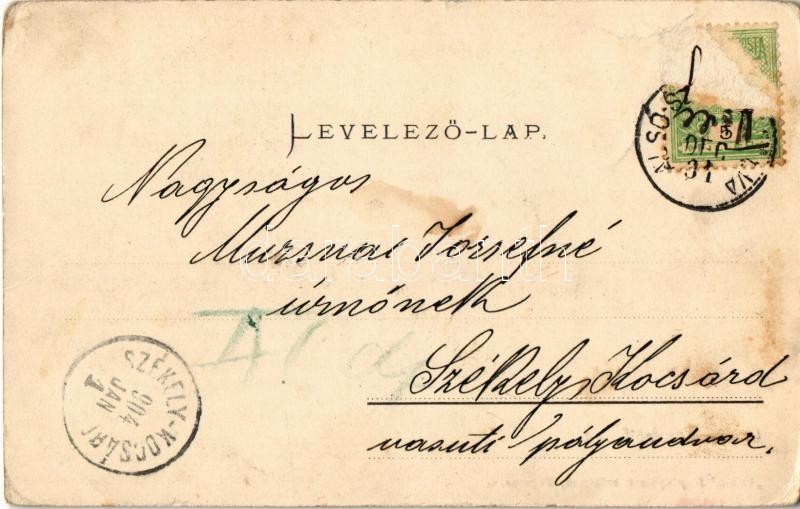 LEVELEZŐ-LAP.
POSTA
DEC
31
Nagyságos
Muzsnai Jozsefné
úrnőnek
Székely Kocsárd
vasuti pályaudvar.
SZÉKELY-KOCSÁRD
904
JAN
1
darabanth